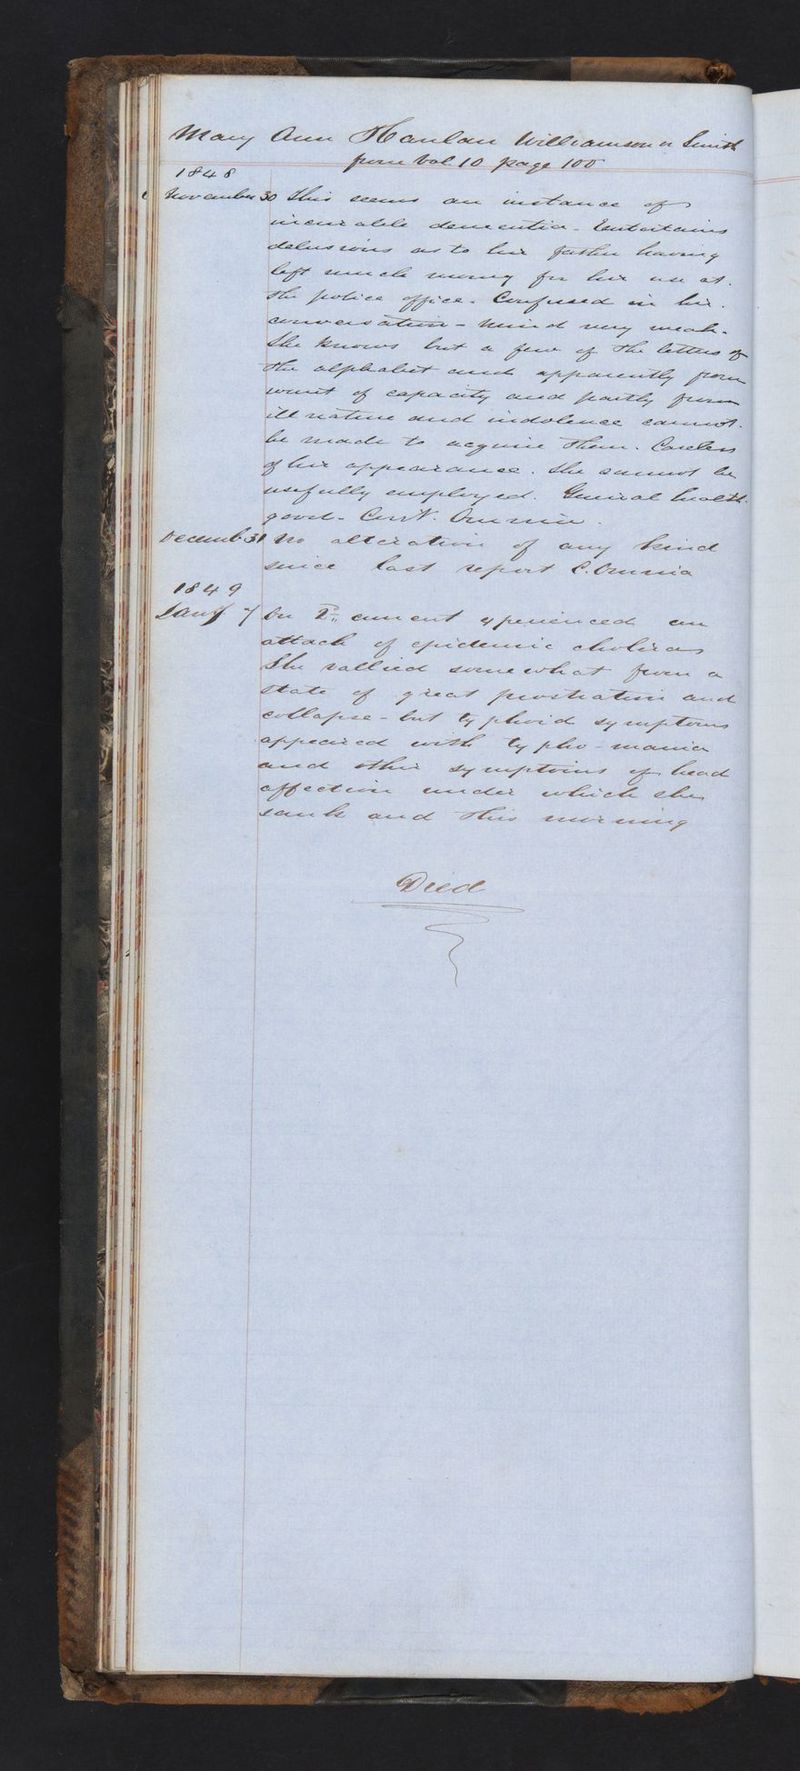 Mary Ann Hanlan Williamson or Smith
from Vol. 10 page 100
1848
November 30 This seems an instance of
incurable dementia - Entertains
delusions as to her father having
left much money for her use at
the police office. Confused in her
conversation - mind very weak.
She knows but a few of the letters of
the alphabet and apparently from
want of capacity and partly from
ill nature and indolence cannot
be made to acquire them. Careless
of her appearance. She cannot be
usefully employed. General health
good. Omnia.
Decemb. 31 No alteration of any kind
since last report C. Omnia
1849
Jany 7 On current experienced an
attack of epidemic cholera
She rallied somewhat from a
state of great prostration and
collapse - but typhoid symptoms
appeared with typho-mania
and other symptoms of head
affection under which she
sank and this morning
Died